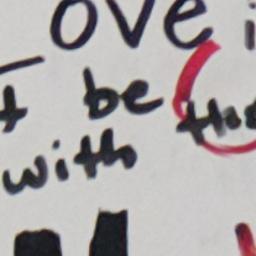 ove i
t be the
with